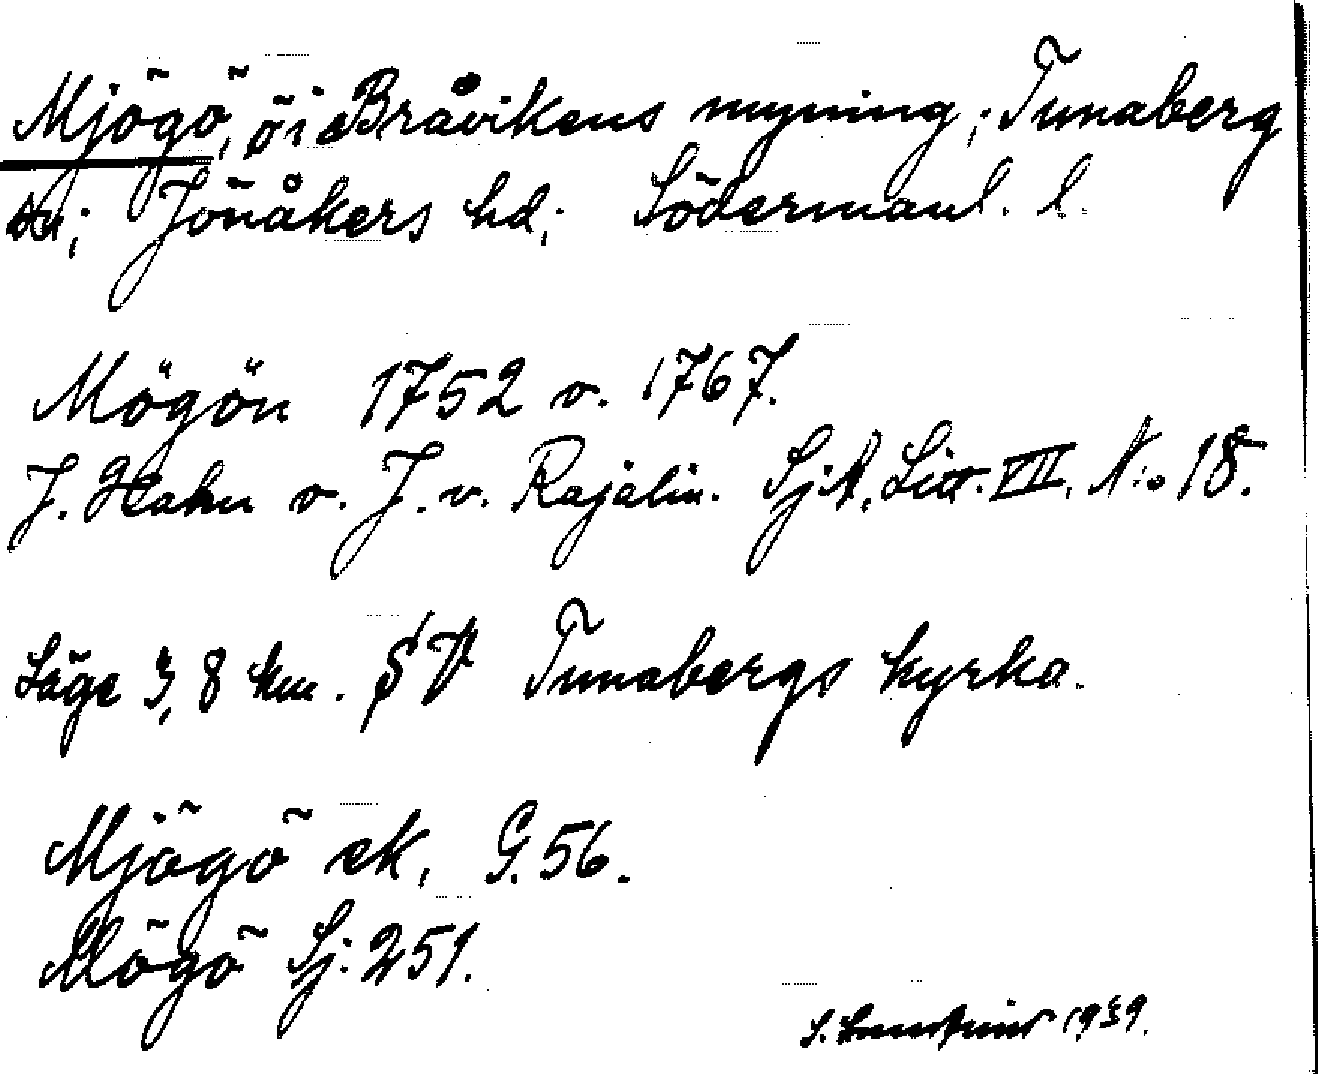 Mjögö, ö i Bråvikens mynning; Tunaberg
sn; Jönåkers hd; Södermanl. l.
Mögön 1752 o. 1767.
J. Hahn o. J. v. Rajalin. SjA. Litt. VII. N:o 18.
Läge 3,8 km. SV Tunabergs kyrka.
Mjögö ek, G. 56.
Mögö Sj: 251.
S. 1939.